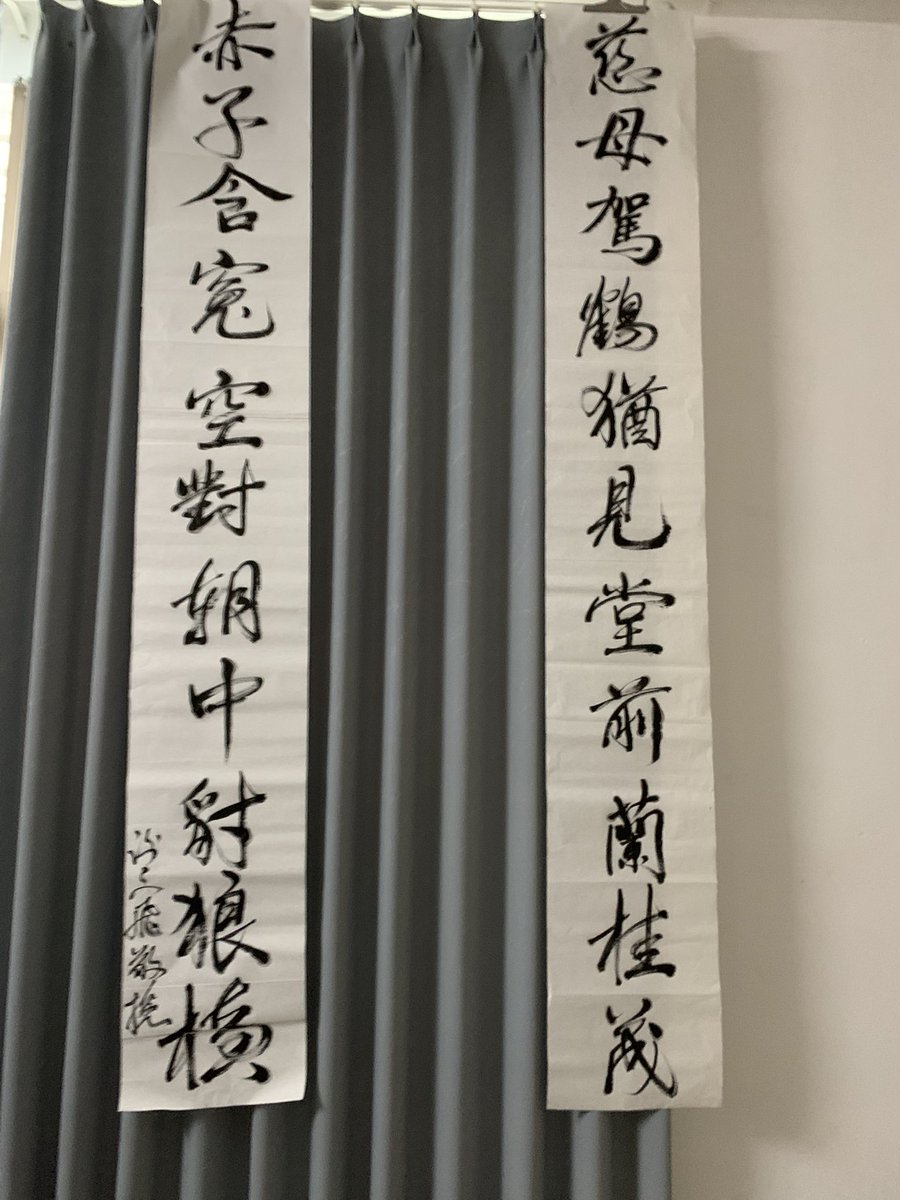 慈母駕鶴猶見堂前蘭桂茂
赤子含冤空對朝中豺狼橫
敬挽